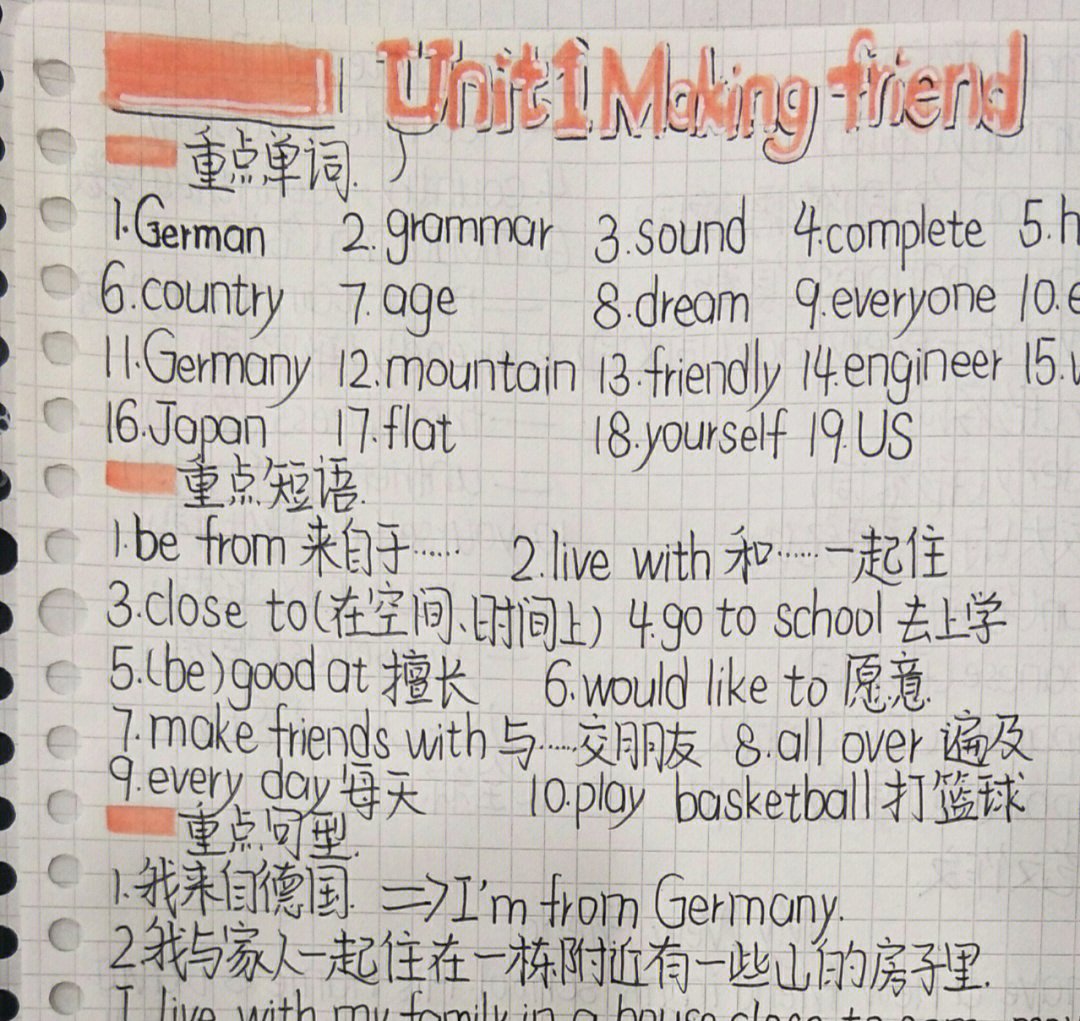 Unit1 Making friend
重点单词.
1.German 2.grammar 3.sound 4.complete 5.h
6.country 7.age 8.dream 9.everyone 10.e
11.Germany 12.mountain 13.friendly 14.engineer 15.
16.Japan 17.flat 18.yourself 19.US
重点短语.
1.be from 来自于…… 2.live with 和……一起住
3.close to(在空间、时间上) 4.go to school 去上学
5.(be)good at 擅长 6.would like to 愿意.
7.make friends with 与……交朋友 8.all over 遍及
9.every day 每天 10.play basketball 打篮球
重点句型.
1.我来自德国. =>I'm from Germany.
2.我与家人一起住在一栋附近有一些山的房子里.
I live with my family in a house close to som